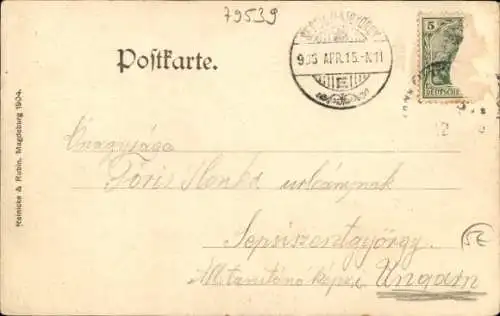 79539
Postkarte.
906 APR. 15
E
5
DEUTSCHE
Reinicke & Rubin, Magdeburg 1904.
Őnagysága
Fóris Ilonka urleánynak
Sepsiszentgyörgy
Áll. tanitónő képző
Ungarn
52
12